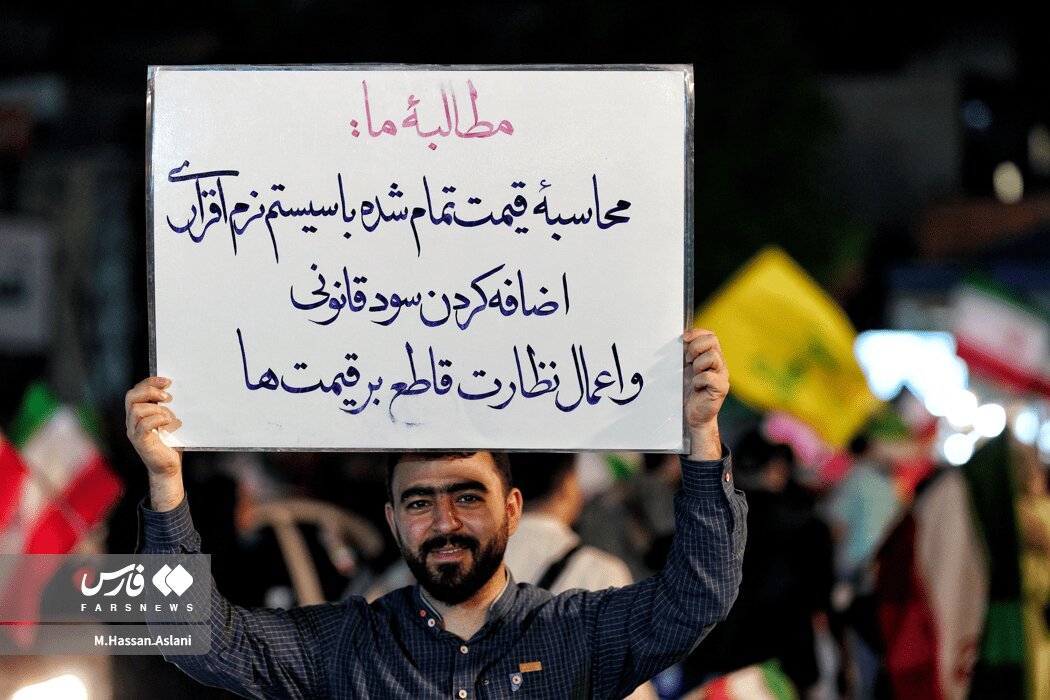 مطالبهٔ ما:
محاسبهٔ قیمت تمام شده با سیستم نرم افزاری
اضافه کردن سود قانونی
و اعمال نظارت قاطع بر قیمت ها
فارس
FARSNEWS
M.Hassan.Aslani